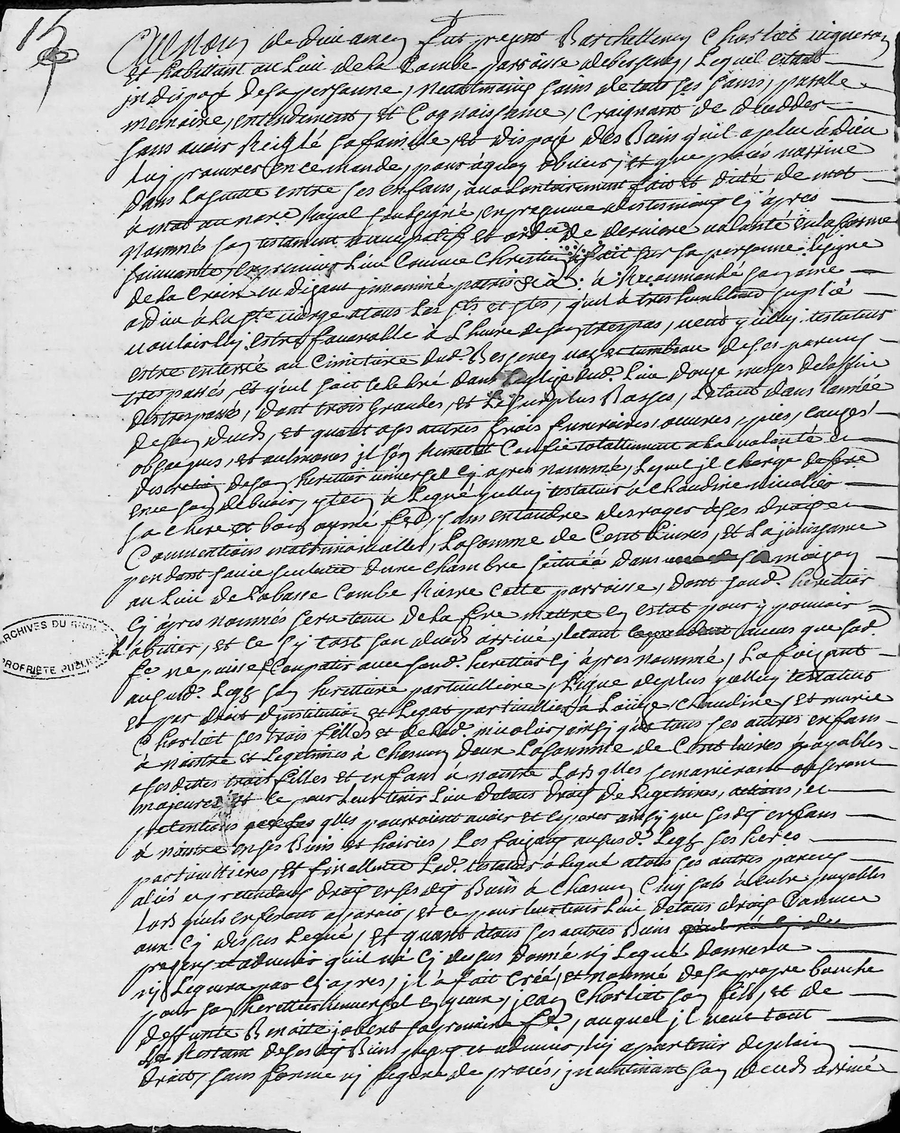 15
Au nom de dieu amen fut present Barthellemy Charliet vigneron
et habittant au lieu de la Combe parroisse de bessenay, Lequel estant
indispozé de sa personne, neantmoins sains de tous ses sans, parolle
memoire, entendement, et Cognoissance, Craignant de deceder
sans avoir Reiglé sa famille et dispozé des Biens qu'il a plu a dieu
luy procurer en ce monde, pour a quoy obvier, et que procés n'arrive
dans la suitte entre ses enfans, a vollontairement fait et dicté de mot
a mot au nore Royal soubsigné en presance des tesmoins cy apres
Nommés son testament nuncupatif et ord.ce de derniere volonté en la forme
suivante, en premier Lieu Comme Chrestien a fait sur sa personne le signe
de la Croix en dizant in nominé patris & a Recommandé son ame
a Dieu a la ste vierge a tous Les sts et stes, qu'il a tres humblemt suplié
vouloir luy estre favorable a L'heure de son trespas, veut y celluy testateur
estre enterré au Cimetiere dud. Bessenay au tombeau de ses parens
trespassés, et qu'il soit celebré dans l'eglize dud. Lieu douze messes de l'office
des trespassés, dont trois grandes, et Le surplus Basses, Le tout dans l'année
de son deceds, et quant a ses autres frais funeraires, oeuvres pies,
obseques, et aulmones il s'en Remet et Confie totallement a la volonté et
discretion de son herittier universel cy apres nommé, Lequel il charge de faire
en ce son debvoir, item a Legué y celluy testateur a Claudine nicollier
sa chere et bien aymée fe, sans entandre desroger a ses droits et
Conventions matrimonialles, La somme de Cent Livres, et La jouissance
pendant sa vie seulemt d'une chambre scituée dans sa maizon
au Lieu de la basse Combe Riere cette parroisse, dont sond. herittier
cy apres nommé sera tenu de la fere mettre en estat pour y pouvoir
habiter, et ce sy tost son deceds arrivé, Le tout aucas que sad.
fe ne puisse Compatir avec sond. herittier cy apres nommé, La faizant
au susd. Legs son herittiere particulliere, Legue de plus y celluy testateur
et par droit d'institution et Legat particullier a Louize, Claudine, et marie
Charliet ses trois filles et de lad. nicollier, ainsy qu'a tous ses autres enfans
a naistre et Legitimes a Chascun deux La somme de Cent livres payables
a sesdittes trois filles et enfans a naistre Lors qu'ils se marieront ou seront
majeures et ce pour leur tenir Lieu de tous droits de Legitimes, actions, et
pretentions qu'ils pourroient avoir et esperer ainsy que sesd. enfans
a naistre en ses Biens et hoiries, Les faizant au susd. Legs ses heres
particulliers, et finallement Led. testateur a legué a tous ses autres parens
aliés et pretendans droits en ses dits Biens a Chascun Cinq sols a leur payables
Lors qu'ils en feront aparoir, et ce pour leur tenir Lieu de tous droits d'avance
aux Cy dessus Legué, et quant a tous ses autres Biens
presens et advenir qu'il n'a Cy dessus donné ny Legué donnera
ny Leguera par Cy apres, il a fait Créé, et nommé de sa propre bouche
pour son herittier universel et general, jean Charliet son fils, et de
deffunte Benoitte jobert sa premiere fe, auquel il veut tout
Le Restant de sesd. Biens presens et advenir, luy apartenir de plain
droit, sans forme ny figure de procés, incontinant son deceds arrivé
ARCHIVES DU RHONE
PROPRIÉTÉ PUBLIQUE